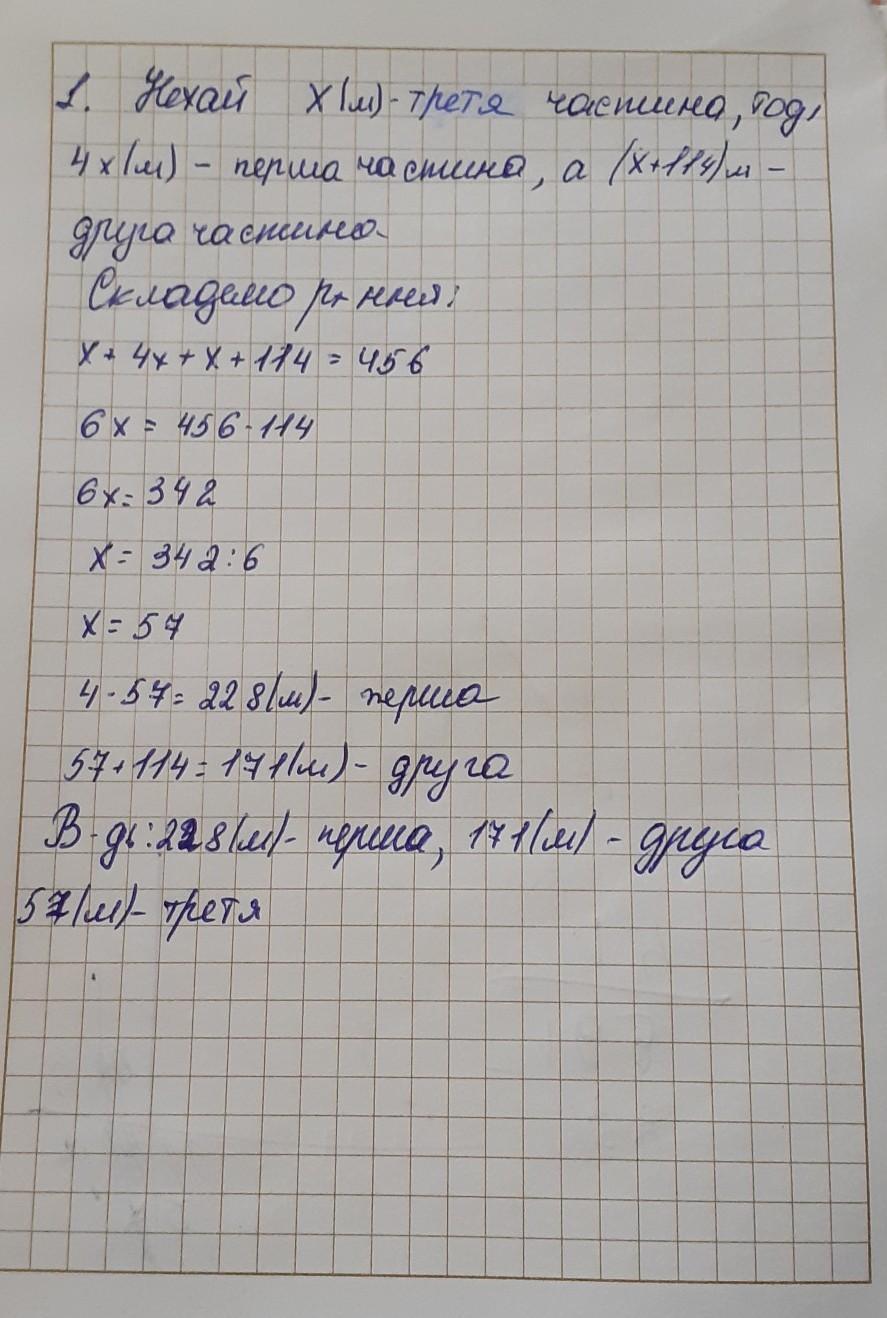 1. Нехай х(м)-третя частина, тоді
4х(м) - перша частина, а (х+114)м -
друга частина.
Складемо р-ння:
х + 4х + х + 114 = 456
6х = 456-114
6х = 342
х = 342:6
х = 57
4·57 = 228(м)- перша
57+114 = 171(м)- друга
В-дь: 228(м)- перша, 171(м) - друга
57(м)- третя